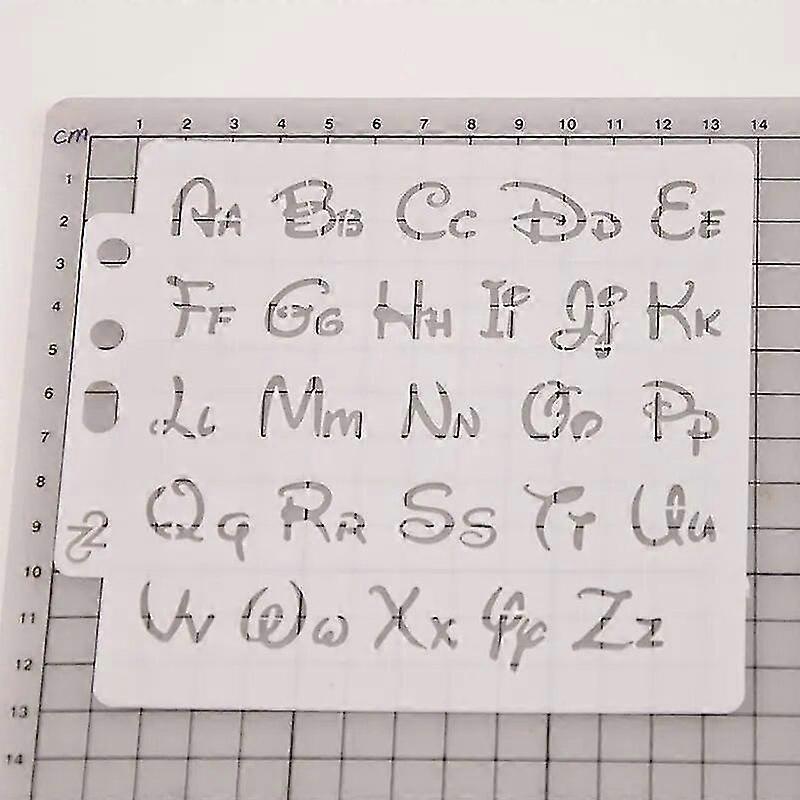 1 2 3 4 5 6 7 8 9 10 11 12 13 14
cm
1
2
3
4
5
6
7
8
9
10
11
12
13
14
Aa Bb Cc Dd Ee
Ff Gg Hh Ii Jj Kk
Ll Mm Nn Oo Pp
Qq Rr Ss Tt Uu
Vv Ww Xx Yy Zz